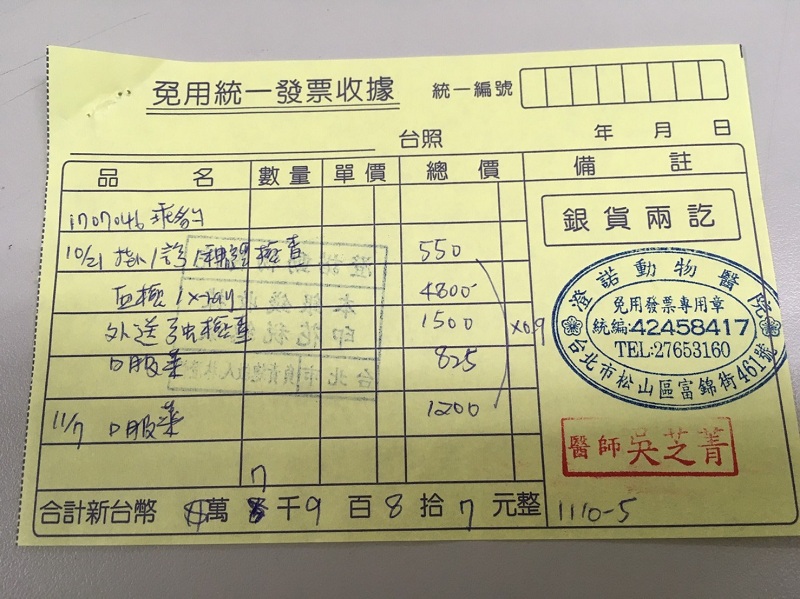 免用統一發票收據
統一編號
台照 年 月 日
品名 數量 單價 總價 備註
1707046 乖豹
10/21 掛/診/ 理檢查 550
血檢/x-ray 4800
外送 檢查 1500
口服藥 825
x0.9
11/7 口服藥 1200
7
合計新台幣 萬 千 9 百 8 拾 7 元整
1110-5
銀貨兩訖
澄諾動物醫院
免用發票專用章
統編:42458417
TEL:27653160
台北市松山區富錦街461號
醫師 吳芝菁
印花稅